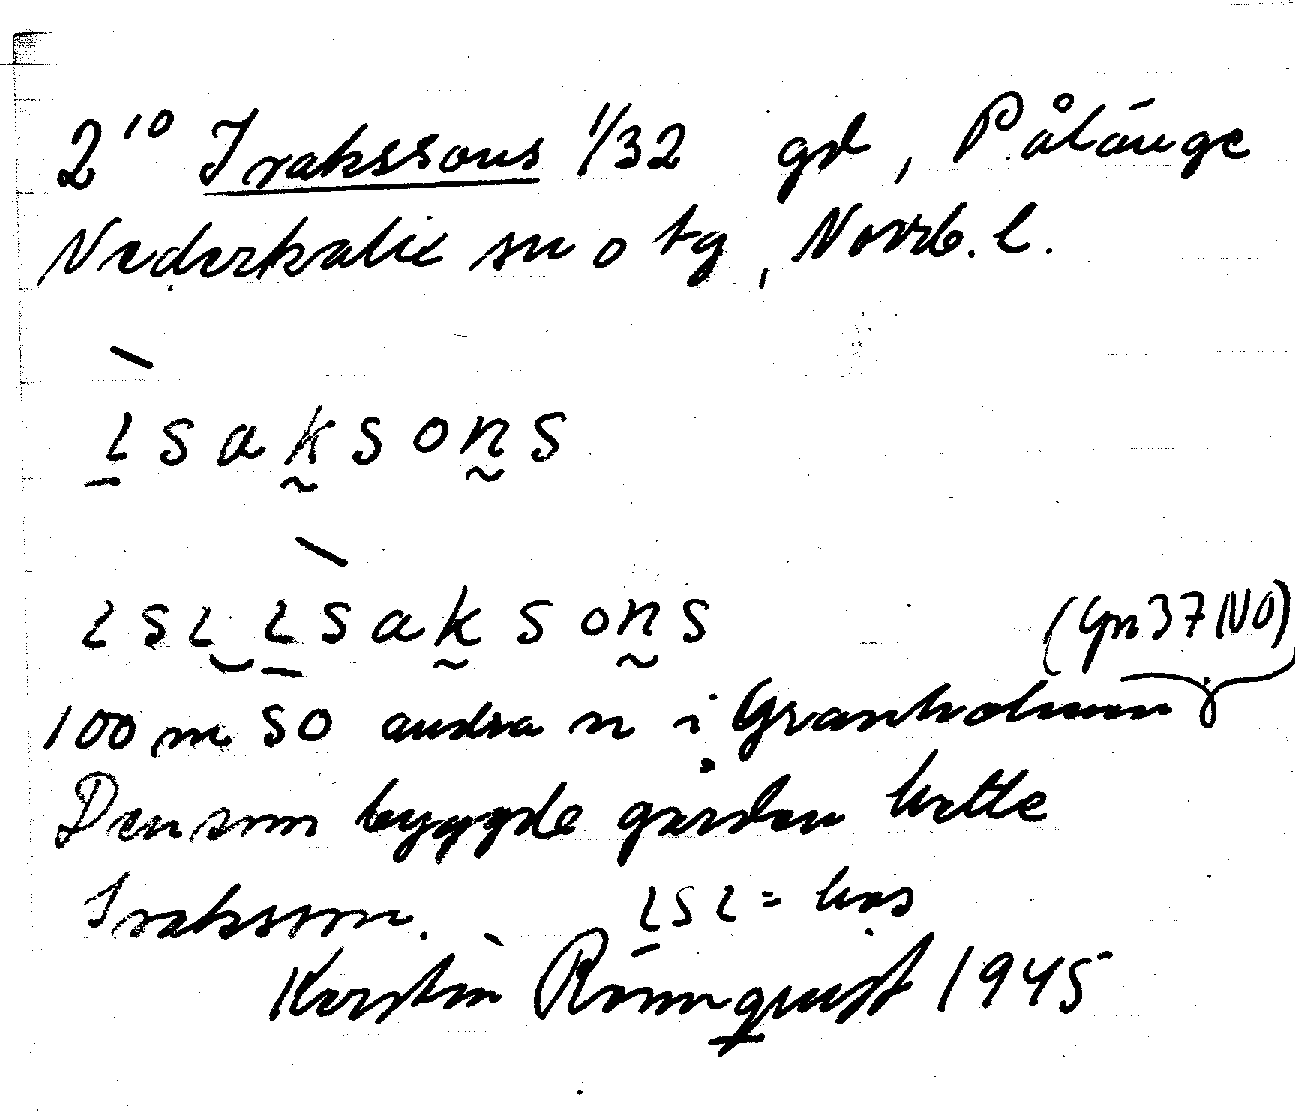 2¹⁰ Isakssons 1/32 gd, Pålänge
Nederkalix sn o tg, Norrb. l.
ɩsaksons
ɩsɩ ɩsaksons
(Gn 37 NO)
100 m SO andra n i Granholmen
Den som byggde gården hette
Isaksson. ɩsɩ = hos
Kerstin Rönnquist 1945